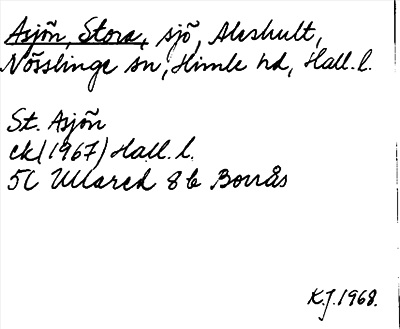 Asjön, Stora, sjö, Aleshult,
Nösslinge sn, Himle hd, Hall. l.
St. Asjön
ek (1967) Hall. l.
5C Ullared 8b Borrås
K.J. 1968.